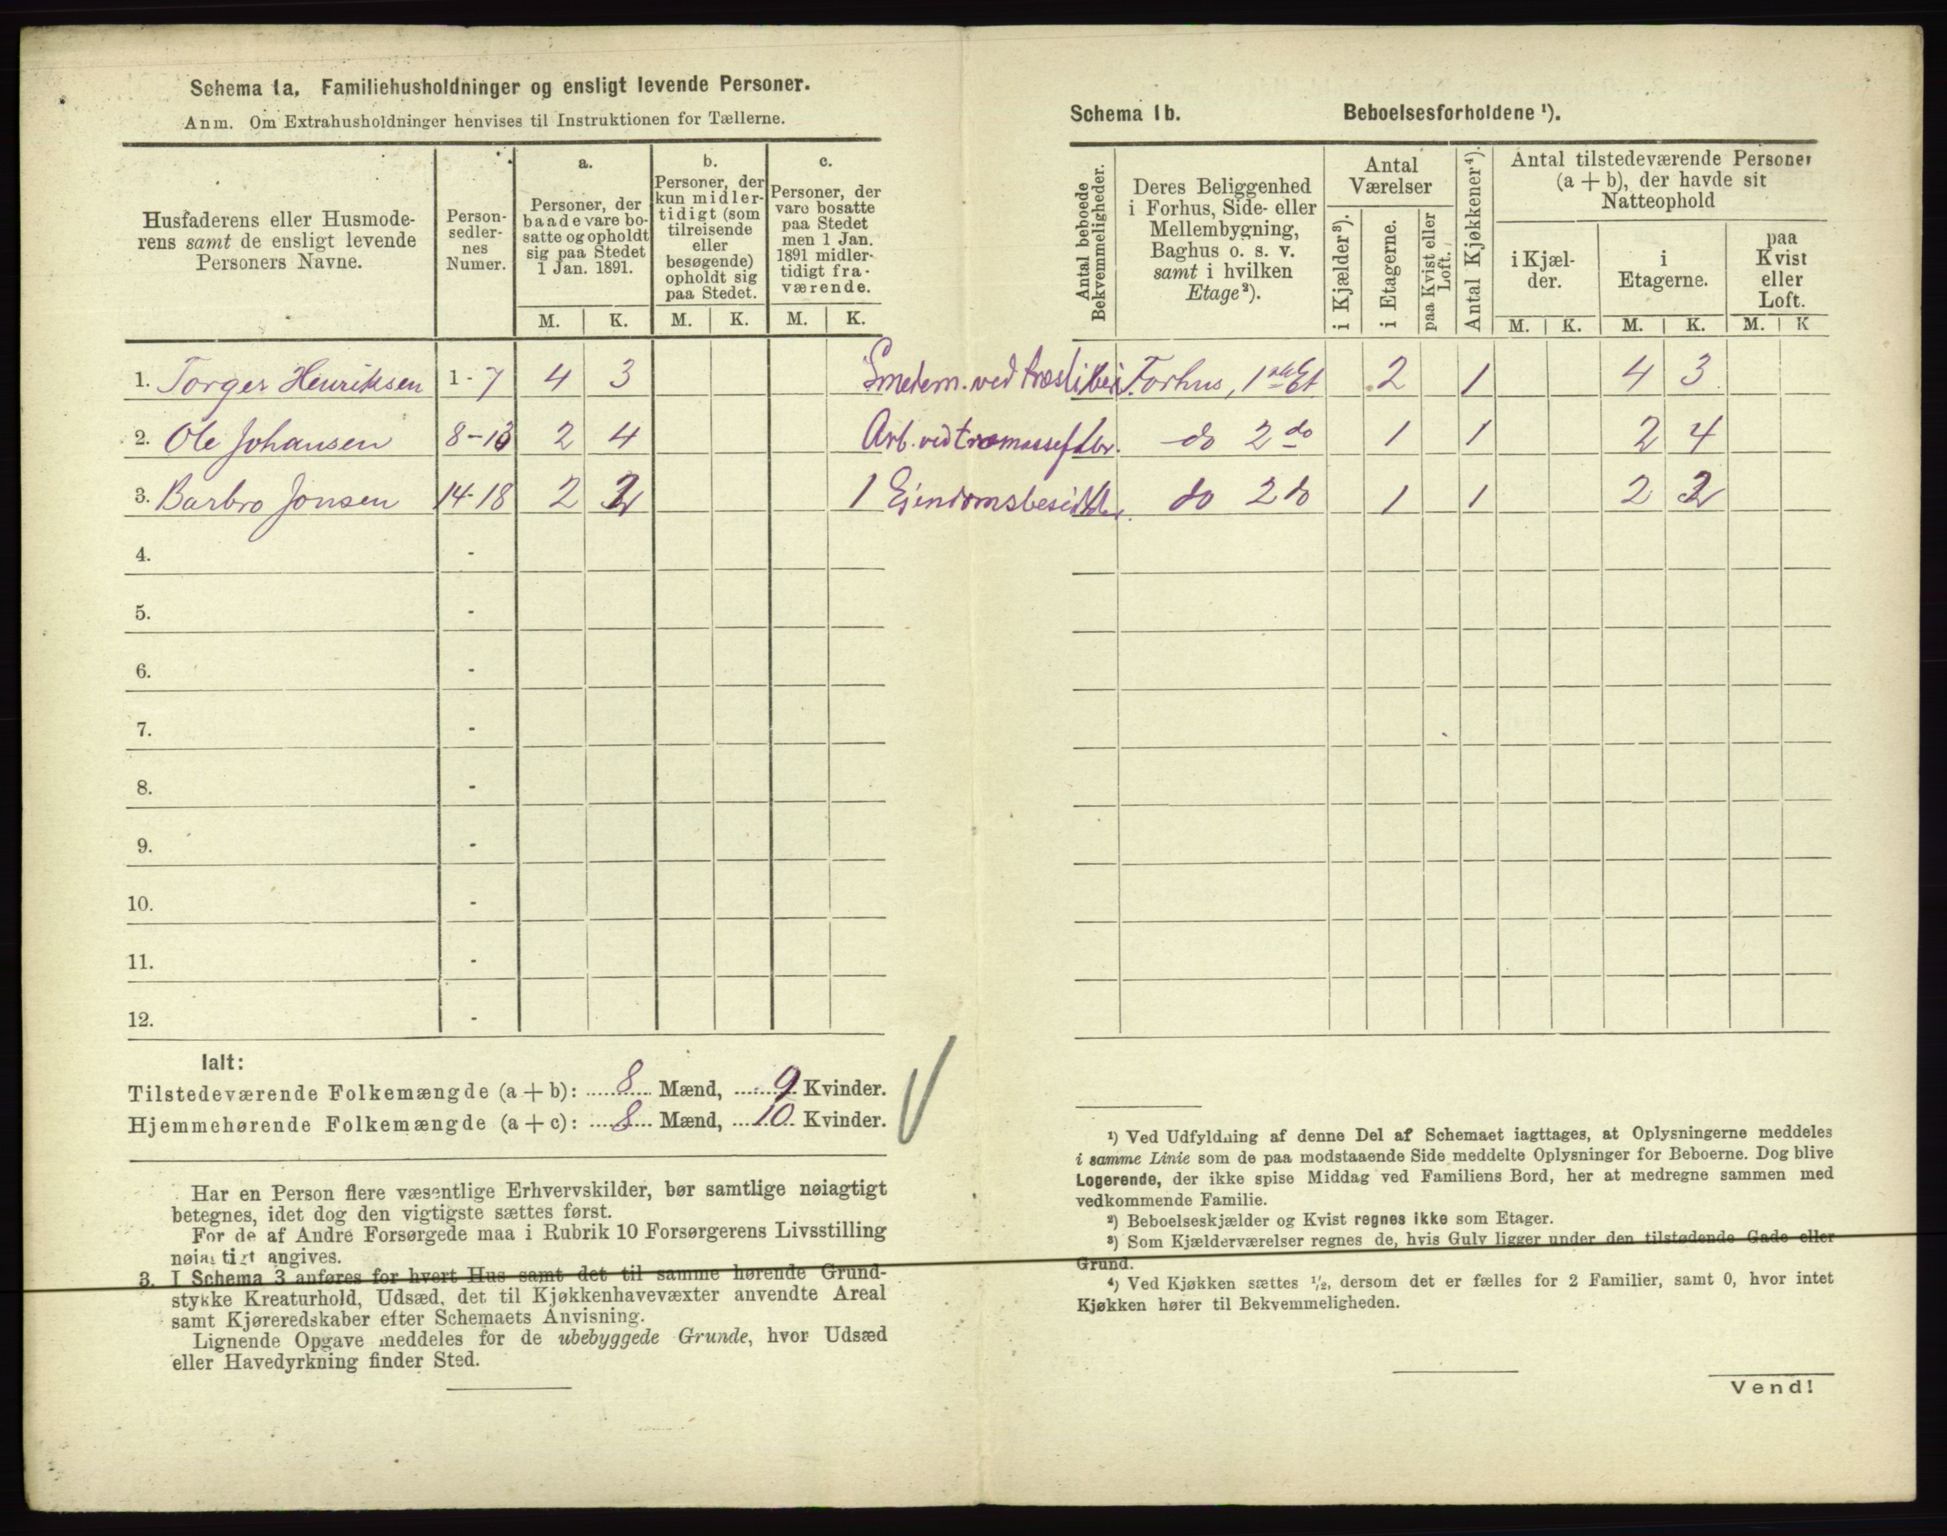 Schema 1a. Familiehusholdninger og ensligt levende Personer.
Anm. Om Extrahusholdninger henvises til Instruktionen for Tællerne.
Husfaderens eller Husmode-
rens samt de ensligt levende
Personers Navne.
Person-
sedler-
nes
Numer.
a.
Personer, der
baade vare bo-
satte og opholdt
sig paa Stedet
1 Jan. 1891.
b.
Personer, der
kun midler-
tidigt (som
tilreisende
eller
besøgende)
opholdt sig
paa Stedet.
c.
Personer, der
vare bosatte
paa Stedet
men 1 Jan.
1891 midler-
tidigt fra-
værende.
M. K. M. K. M. K.
1. Torger Henriksen 1-7 4 3 Smedem. ved
2. Ole Johansen 8-13 2 4 Arb. ved træmassefabr.
3. Barbro Jonsen 14-18 2 2 1 Ejendomsbesidder.
4. -
5. -
6. -
7. -
8. -
9. -
10. -
11. -
12. -
Ialt:
Tilstedeværende Folkemængde (a + b): 8 Mænd, 9 Kvinder.
Hjemmehørende Folkemængde (a + c): 8 Mænd, 10 Kvinder.
Har en Person flere væsentlige Erhvervskilder, bør samtlige nøiagtigt
betegnes, idet dog den vigtigste sættes først.
For de af Andre Forsørgede maa i Rubrik 10 Forsørgerens Livsstilling
nøiagtigt angives.
3. I Schema 3 anføres for hvert Hus samt det til samme hørende Grund-
stykke Kreaturhold, Udsæd, det til Kjøkkenhavevæxter anvendte Areal
samt Kjøreredskaber efter Schemaets Anvisning.
Lignende Opgave meddeles for de ubebyggede Grunde, hvor Udsæd
eller Havedyrkning finder Sted.
Schema 1b. Beboelsesforholdene ¹).
Antal beboede
Bekvemmeligheder.
Deres Beliggenhed
i Forhus, Side- eller
Mellembygning,
Baghus o. s. v.
samt i hvilken
Etage²).
Antal
Værelser
i Kjælder³).
i Etagerne.
paa Kvist eller
Loft.
Antal Kjøkkener⁴).
Antal tilstedeværende Personer
(a + b), der havde sit
Natteophold
i Kjæl-
der.
i
Etagerne.
paa
Kvist
eller
Loft.
M. K. M. K. M. K
Forhus, 1ste Et 2 1 4 3
do 2 do 1 1 2 4
do 2 do 1 1 2 2
¹) Ved Udfyldning af denne Del af Schemaet iagttages, at Oplysningerne meddeles
i samme Linie som de paa modstaaende Side meddelte Oplysninger for Beboerne. Dog blive
Logerende, der ikke spise Middag ved Familiens Bord, her at medregne sammen med
vedkommende Familie.
²) Beboelseskjælder og Kvist regnes ikke som Etager.
³) Som Kjælderværelser regnes de, hvis Gulv ligger under den tilstødende Gade eller
Grund.
⁴) Ved Kjøkken sættes ½, dersom det er fælles for 2 Familier, samt 0, hvor intet
Kjøkken hører til Bekvemmeligheden.
Vend!